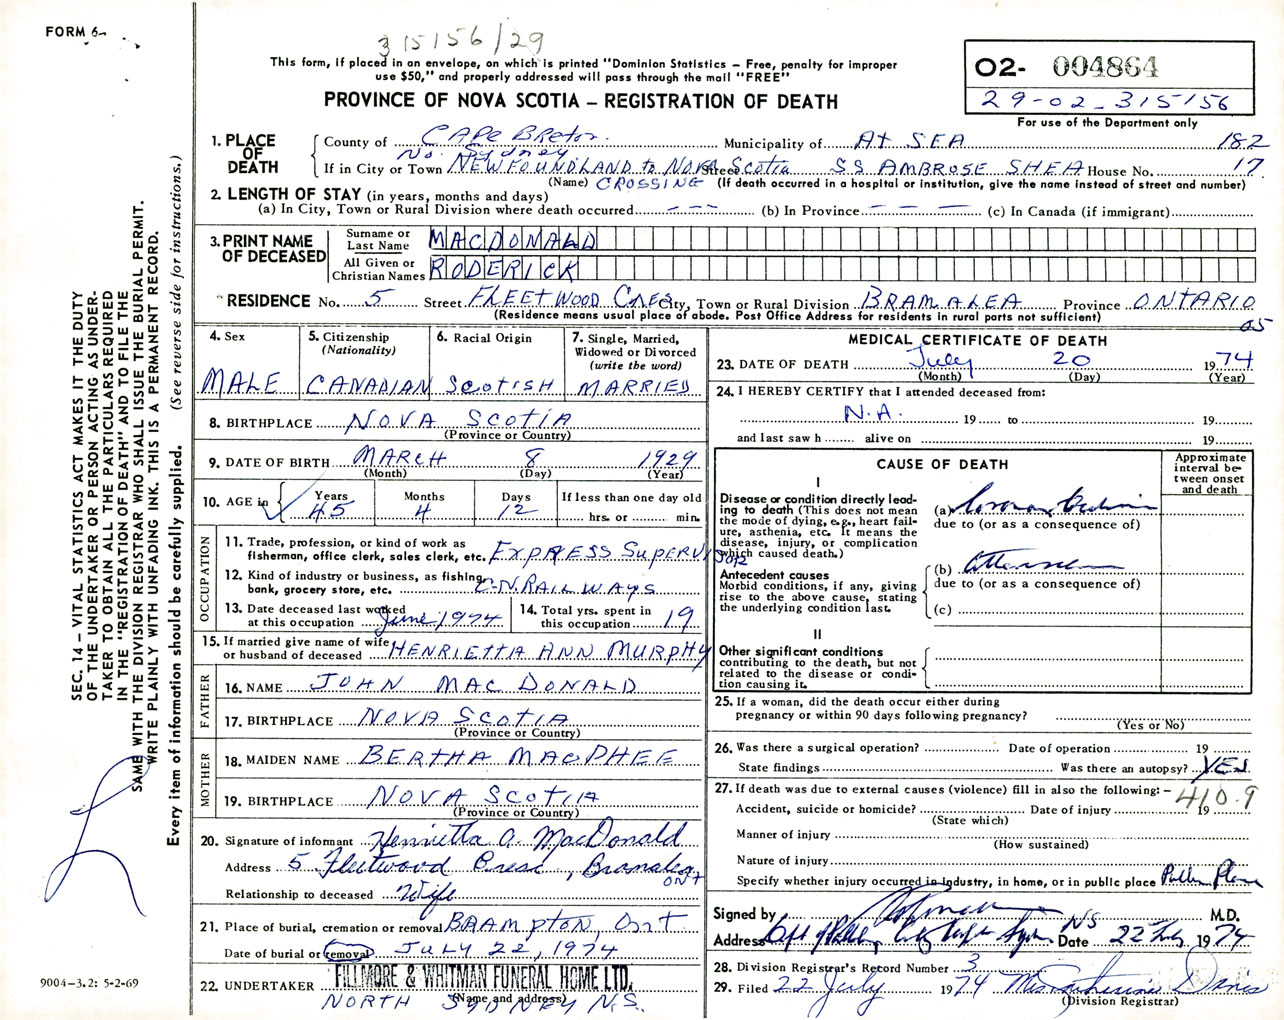 FORM 6-
315156/29
This form, if placed in an envelope, on which is printed "Dominion Statistics – Free, penalty for improper
use $50," and properly addressed will pass through the mail "FREE"
PROVINCE OF NOVA SCOTIA – REGISTRATION OF DEATH
O2- 004864
29-02-315156
For use of the Department only
1. PLACE OF DEATH
County of CAPE BRETON Municipality of AT SEA 182
No. Sydney
If in City or Town NEWFOUNDLAND to NOVA Scotia Street SS AMBROSE SHEA House No. 17
(Name) CROSSING (If death occurred in a hospital or institution, give the name instead of street and number)
2. LENGTH OF STAY (in years, months and days)
(a) In City, Town or Rural Division where death occurred --- (b) In Province --- (c) In Canada (if immigrant)
3. PRINT NAME OF DECEASED
Surname or Last Name MACDONALD
All Given or Christian Names RODERICK
RESIDENCE No. 5 Street FLEETWOOD CRES City, Town or Rural Division BRAMALEA Province ONTARIO
(Residence means usual place of abode. Post Office Address for residents in rural parts not sufficient)
05
4. Sex
MALE
5. Citizenship (Nationality)
CANADIAN
6. Racial Origin
SCOTISH
7. Single, Married, Widowed or Divorced (write the word)
MARRIED
8. BIRTHPLACE NOVA SCOTIA
(Province or Country)
9. DATE OF BIRTH MARCH 8 1929
(Month) (Day) (Year)
10. AGE in Years Months Days If less than one day old
45 4 12 hrs. or min.
OCCUPATION
11. Trade, profession, or kind of work as
fisherman, office clerk, sales clerk, etc. EXPRESS SUPERVISOR
12. Kind of industry or business, as fishing,
bank, grocery store, etc. C.N. RAILWAYS
13. Date deceased last worked
at this occupation June, 1974
14. Total yrs. spent in
this occupation 19
15. If married give name of wife
or husband of deceased HENRIETTA ANN MURPHY
FATHER
16. NAME JOHN MACDONALD
17. BIRTHPLACE NOVA SCOTIA
(Province or Country)
MOTHER
18. MAIDEN NAME BERTHA MACPHEE
19. BIRTHPLACE NOVA SCOTIA
(Province or Country)
20. Signature of informant Henrietta A. MacDonald
Address 5 Fleetwood Cresc, Bramalea ONT
Relationship to deceased Wife
21. Place of burial, cremation or removal BRAMPTON, Ont
Date of burial or removal JULY 22, 1974
22. UNDERTAKER FILLMORE & WHITMAN FUNERAL HOME LTD.
(Name and address)
NORTH SYDNEY N.S.
MEDICAL CERTIFICATE OF DEATH
23. DATE OF DEATH July 20 1974
(Month) (Day) (Year)
24. I HEREBY CERTIFY that I attended deceased from:
N.A. 19 to 19
and last saw h alive on 19
CAUSE OF DEATH
Approximate interval between onset and death
I
Disease or condition directly lead-
ing to death (This does not mean
the mode of dying, e.g., heart fail-
ure, asthenia, etc. It means the
disease, injury, or complication
which caused death.)
(a)
due to (or as a consequence of)
Antecedent causes
Morbid conditions, if any, giving
rise to the above cause, stating
the underlying condition last.
(b)
due to (or as a consequence of)
(c)
II
Other significant conditions
contributing to the death, but not
related to the disease or condi-
tion causing it.
25. If a woman, did the death occur either during
pregnancy or within 90 days following pregnancy?
(Yes or No)
26. Was there a surgical operation? Date of operation 19
State findings Was there an autopsy? YES
27. If death was due to external causes (violence) fill in also the following: –
410.9
Accident, suicide or homicide? Date of injury 19
(State which)
Manner of injury
(How sustained)
Nature of injury
Specify whether injury occurred in Industry, in home, or in public place
Signed by M.D.
Address NS Date 22 July 1974
28. Division Registrar's Record Number 3
29. Filed 22 July 1974
(Division Registrar)
SEC. 14 – VITAL STATISTICS ACT MAKES IT THE DUTY
OF THE UNDERTAKER OR PERSON ACTING AS UNDER-
TAKER TO OBTAIN ALL THE PARTICULARS REQUIRED
IN THE "REGISTRATION OF DEATH" AND TO FILE THE
SAME WITH THE DIVISION REGISTRAR WHO SHALL ISSUE THE BURIAL PERMIT.
WRITE PLAINLY WITH UNFADING INK. THIS IS A PERMANENT RECORD.
Every item of information should be carefully supplied. (See reverse side for instructions.)
9004-3.2: 5-2-69